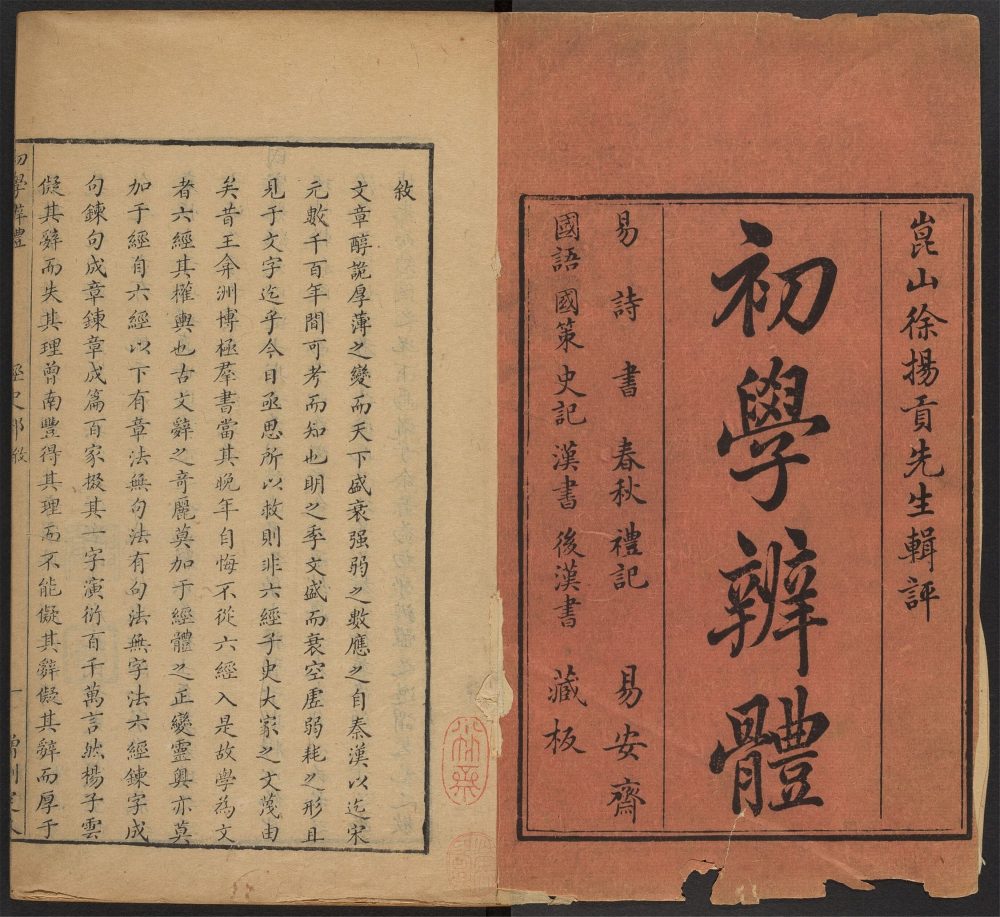 崑山徐揚貢先生輯評
初學辨體
易 詩 書 春秋 禮記 易安齋
國語 國策 史記 漢書 後漢書 藏板
敘
文章醇詭厚薄之變而天下盛衰强弱之數應之自秦漢以迄宋
元數千百年間可考而知也明之季文盛而衰空虛弱耗之形且
見于文字迄乎今日亟思所以救則非六經子史大家之文蔑由
矣昔王弇洲博極羣書當其晚年自悔不從六經入是故學為文
者六經其權輿也古文辭之奇麗莫加于經體之正變靈奧亦莫
加于六經自六經以下有章法無句法有句法無字法六經鍊字成
句鍊句成章鍊章成篇百家掇其一字演衍百千萬言然楊子雲
儗其辭而失其理曾南豐得其理而不能儗其辭儗其辭而厚于
初學辨體 經史部敘 一